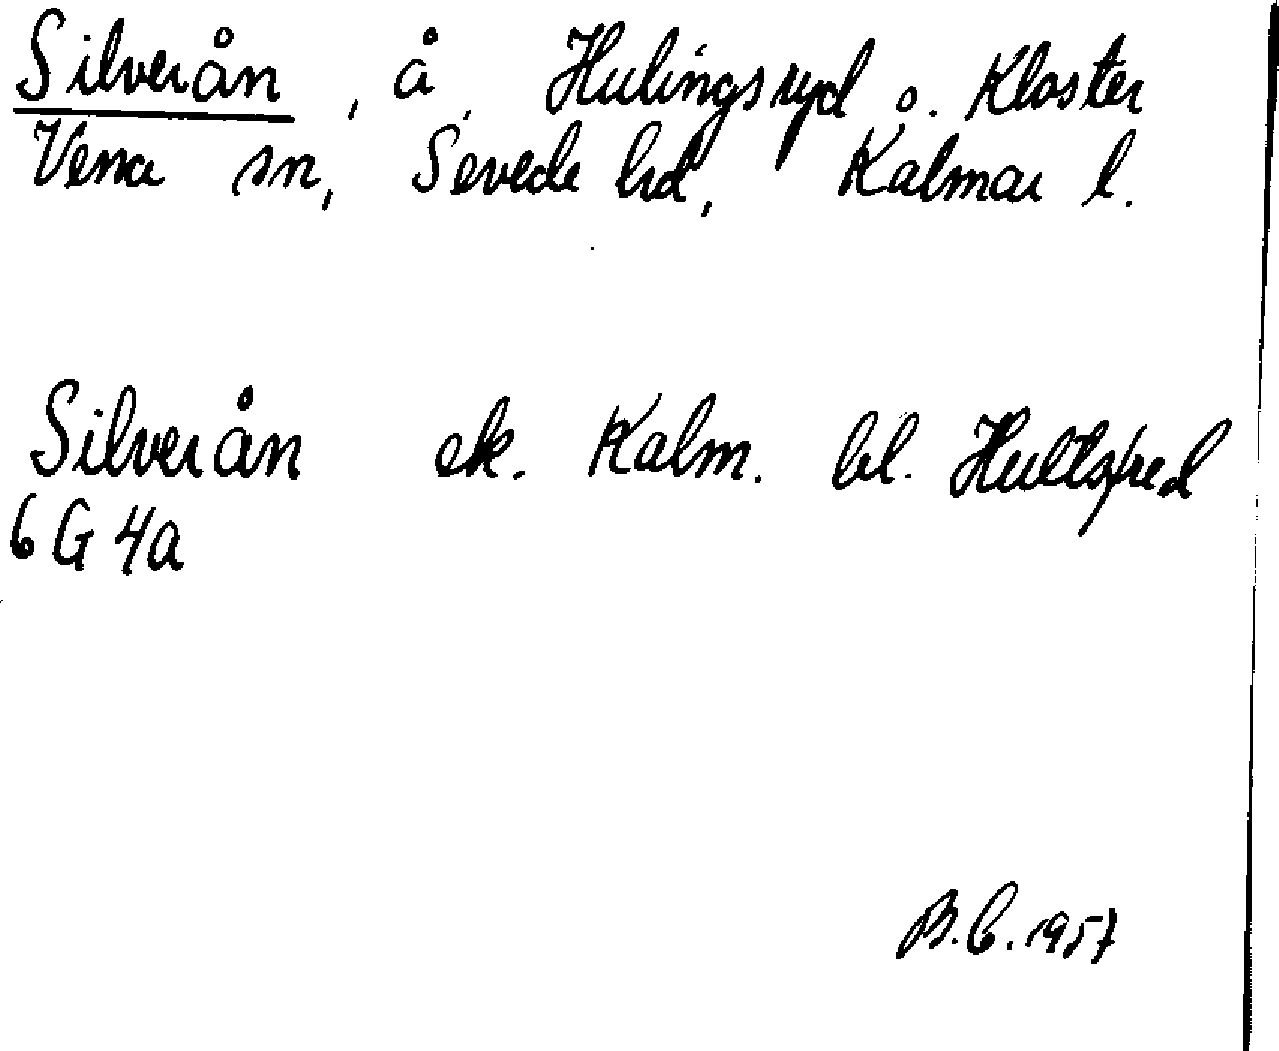 Silverån, å, Hulingsryd o. Kloster
Vena sn, Sevede hd, Kalmar l.
Silverån ek. Kalm. bl. Hultsfred
6 G 4a
B.C. 1957